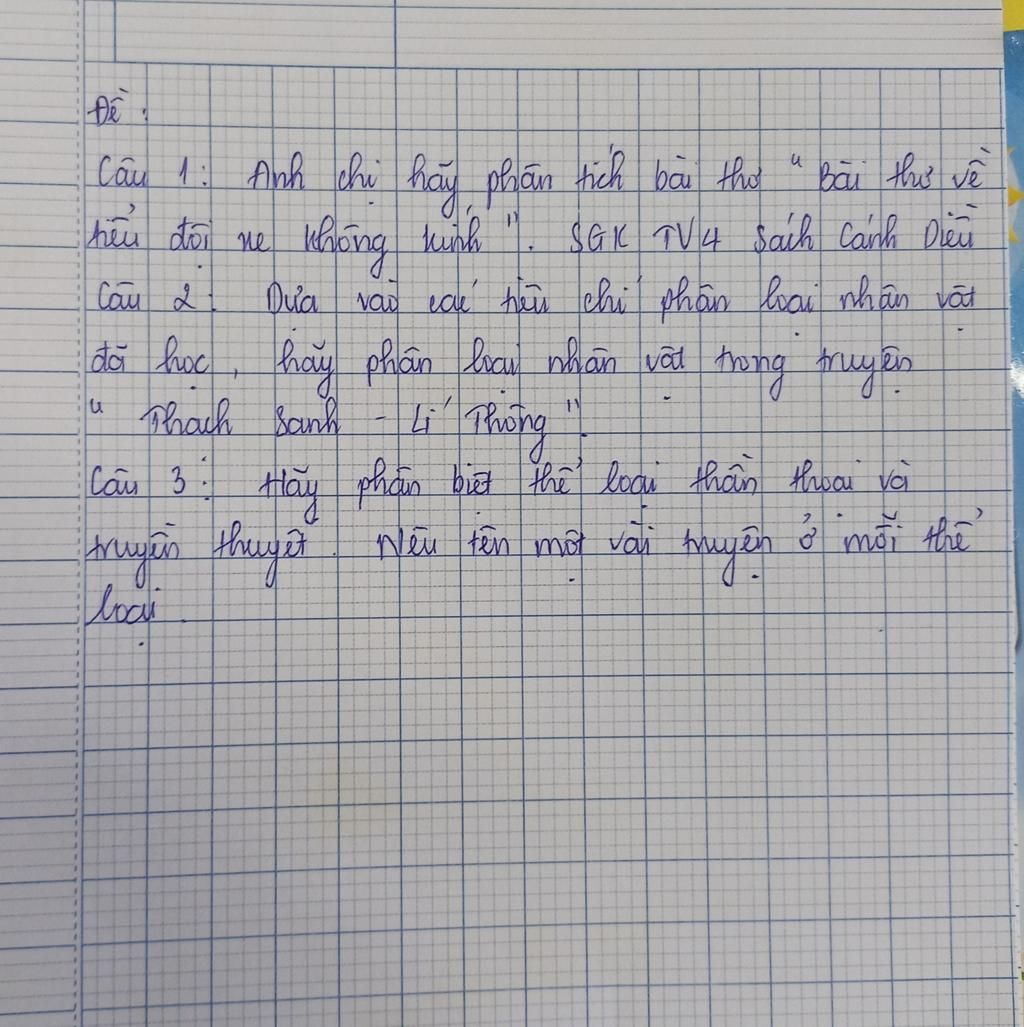 Đề:
Câu 1: Anh chị hãy phân tích bài thơ "Bài thơ về
tiểu đội xe không kính". SGK TV4 sách Cánh Diều
Câu 2: Dựa vào các tiêu chí phân loại nhân vật
đã học, hãy phân loại nhân vật trong truyện
"Thạch Sanh - Lí Thông".
Câu 3: Hãy phân biệt thể loại thần thoại và
truyền thuyết. Nêu tên một vài truyện ở mỗi thể
loại.